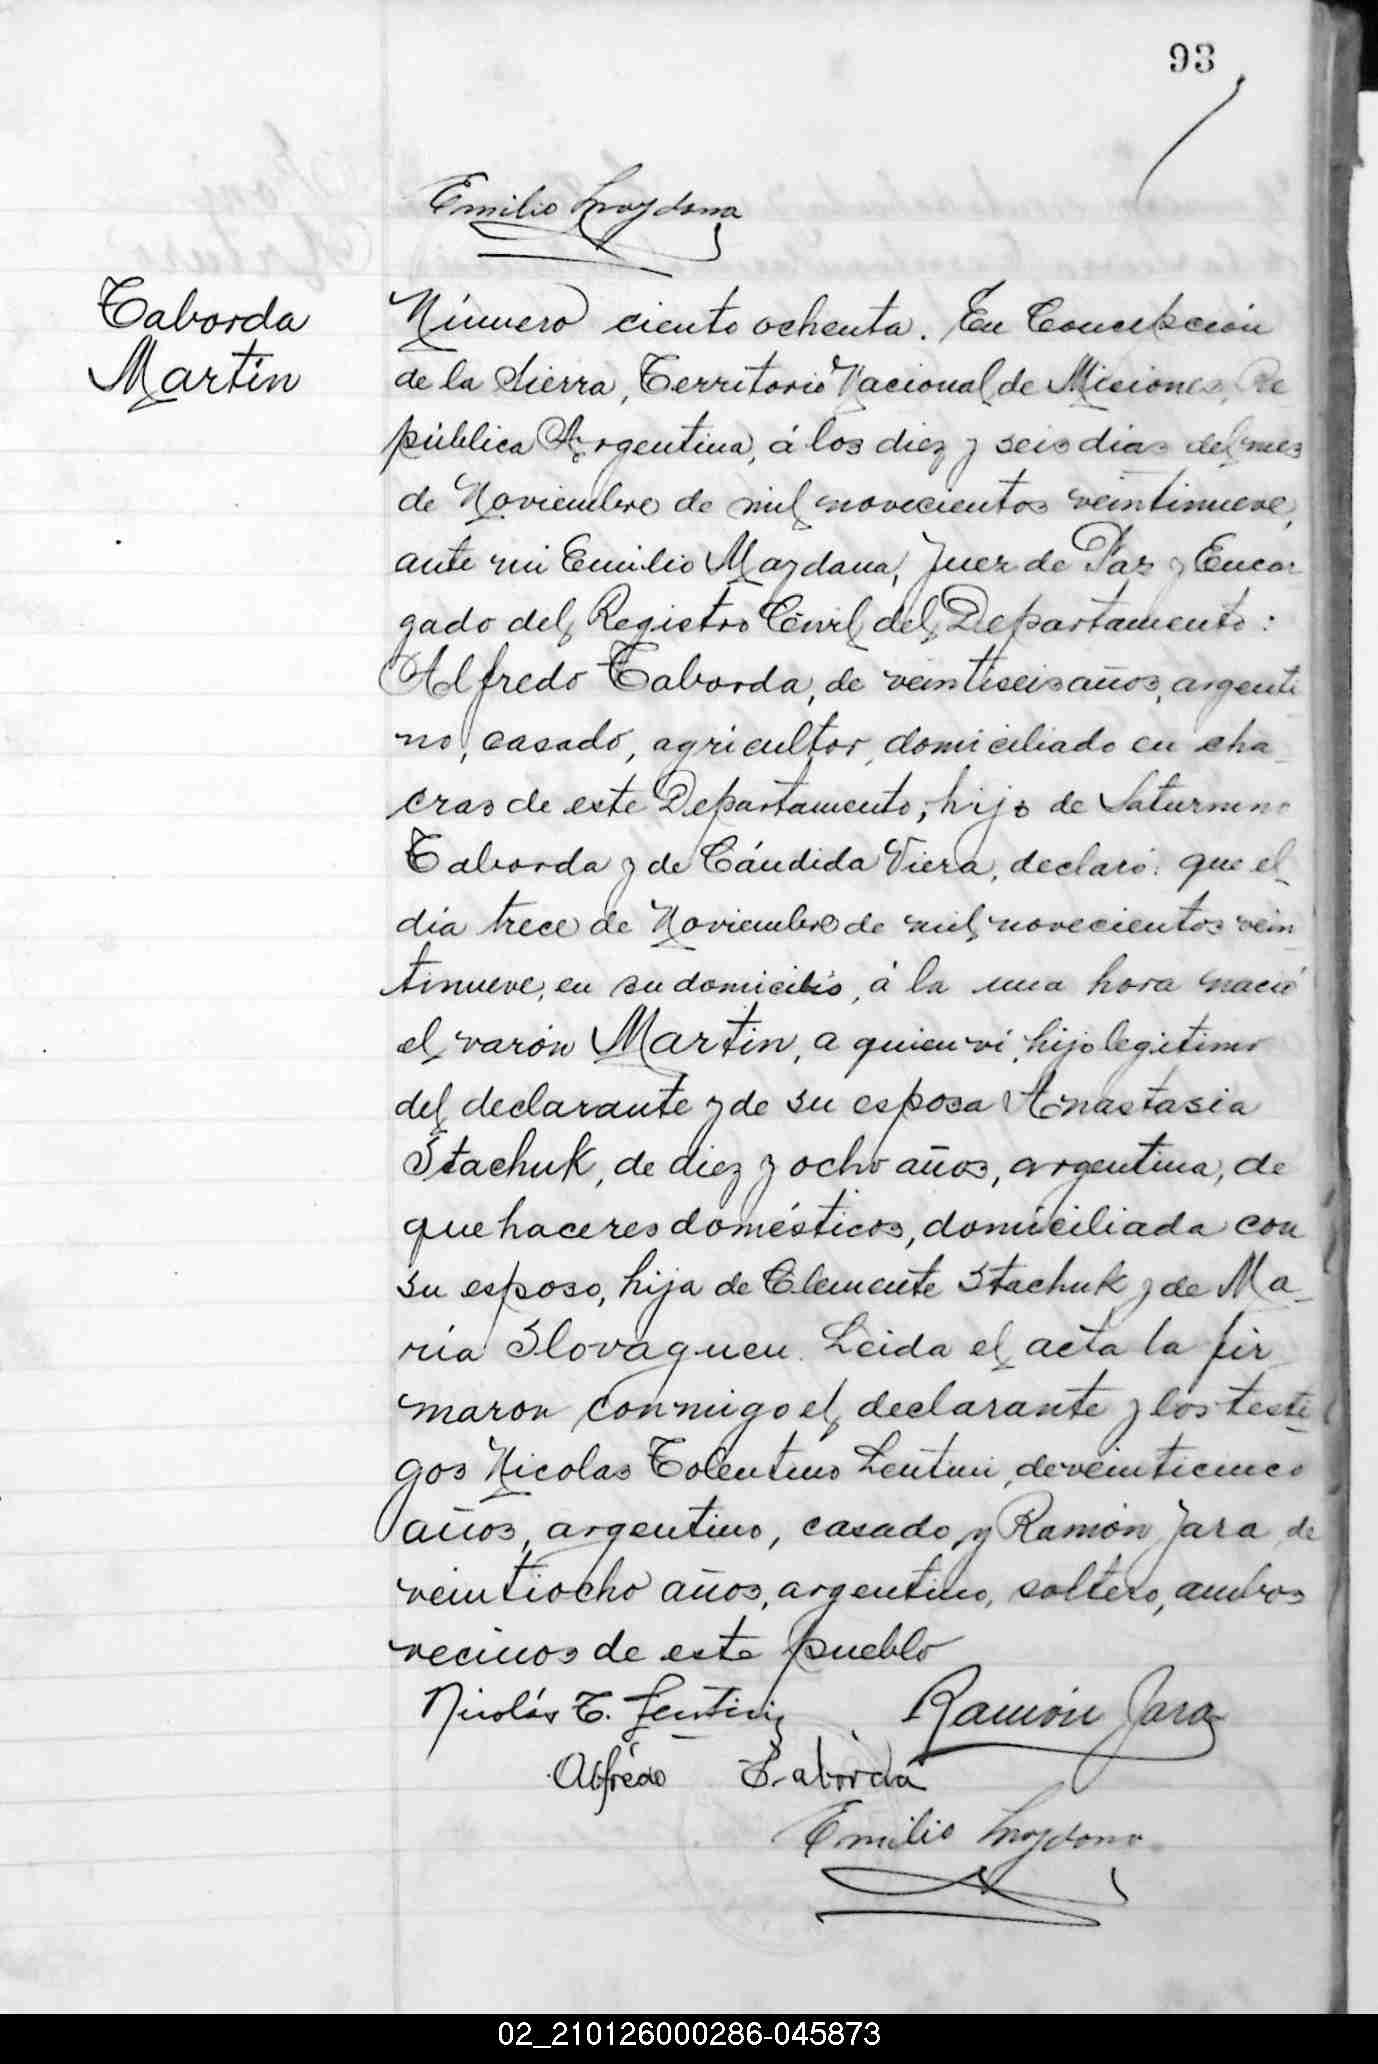 93
Emilio Maydana
Taborda
Martin
Número ciento ochenta. En Concepción
de la Sierra, Territorio Nacional de Misiones, Re
pública Argentina, á los diez y seis dias del mes
de Noviembre de mil novecientos veintinueve,
ante mi Emilio Maydana, Juez de Paz y Encar
gado del Registro Civil del Departamento:
Alfredo Taborda, de veintiseis años, argenti
no, casado, agricultor, domiciliado en cha
cras de este Departamento, hijo de Saturnino
Taborda y de Cándida Viera, declaró: que el
día trece de Noviembre de mil novecientos vein
tinueve, en su domicilio, á la una hora nació
el varón Martin, a quien vi, hijo legitimo
del declarante y de su esposa Anastasia
Stachuk, de diez y ocho años, argentina, de
quehaceres domésticos, domiciliada con
su esposo, hija de Clemente Stachuk y de Ma-
ria Slovaguen. Leida el acta la fir
maron conmigo el declarante y los testi
gos Nicolas Tolentino Lentini, de veinticinco
años, argentino, casado y Ramón Jara de
veintiocho años, argentino, soltero, ambos
vecinos de este pueblo
Nicolás T. Lentini Ramón Jara
Alfredo Taborda
Emilio Maydana
02_210126000286-045873